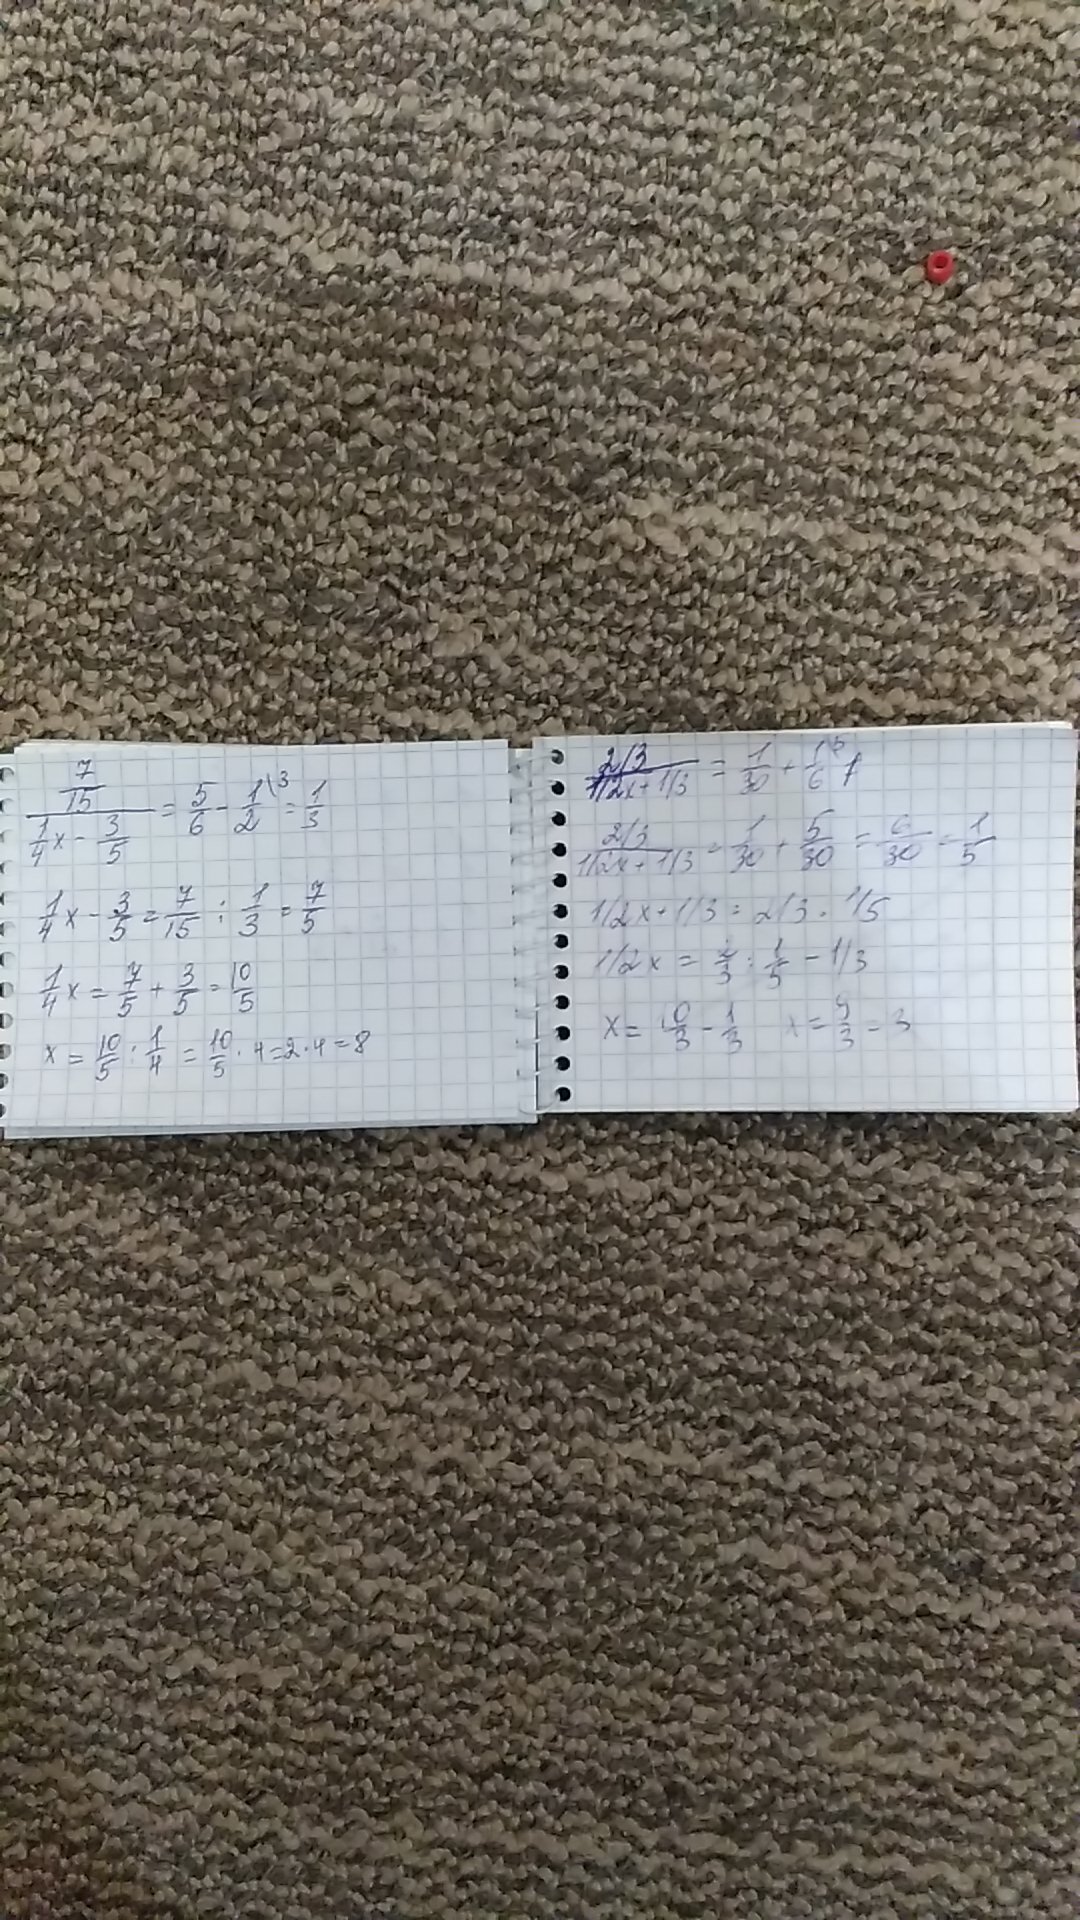 7/15 / (1/4 x - 3/5) = 5/6 - 1/2 \3 = 1/3
1/4 x - 3/5 = 7/15 : 1/3 = 7/5
1/4 x = 7/5 + 3/5 = 10/5
x = 10/5 : 1/4 = 10/5 · 4 = 2 · 4 = 8
2/3 / (1/2x + 1/3) = 1/30 + 1/6 \5
2/3 / (1/2x + 1/3) = 1/30 + 5/30 = 6/30 = 1/5
1/2x + 1/3 = 2/3 : 1/5
1/2x = 2/3 : 1/5 - 1/3
x = 10/3 - 1/3 x = 9/3 = 3